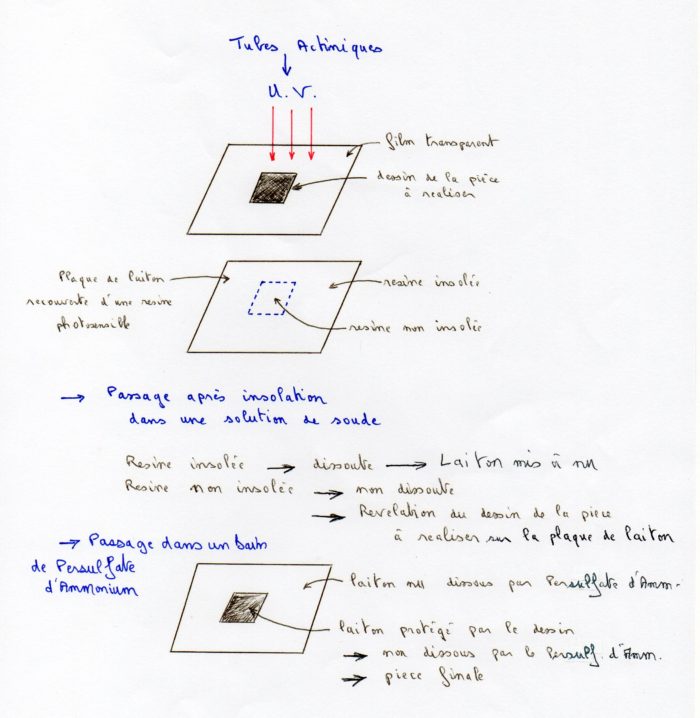 Tubes Actiniques
U.V.
film transparent
dessin de la pièce
à realiser
Plaque de laiton
recouverte d'une resine
photosensible
resine insolée
resine non insolée
→ Passage après insolation
dans une solution de soude
Resine insolée → dissoute → Laiton mis à nu
Resine non insolée → non dissoute
→ Revelation du dessin de la piece
à realiser sur la plaque de laiton
→ Passage dans un bain
de Persulfate
d'Ammonium
laiton nu dissous par Persulfate d'Amm.
laiton protégé par le dessin
→ non dissous par le Persulf. d'Amm.
→ piece finale